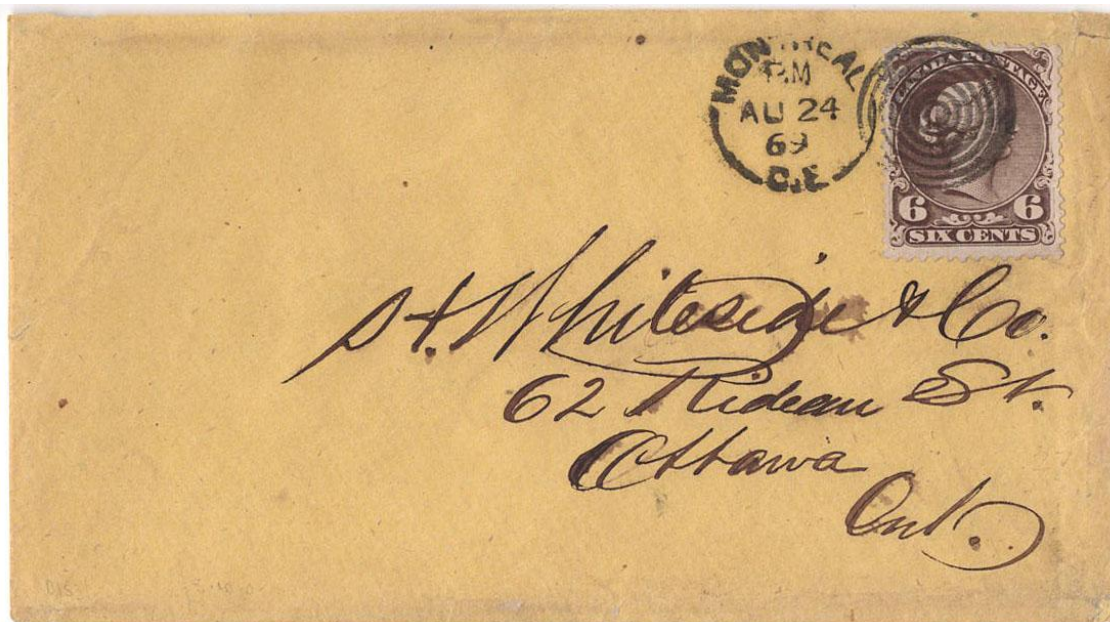 MONTREAL
PM
AU 24
69
C.E
CANADA POSTAGE
6 6
SIX CENTS
Whiteside & Co.
62 Rideau St.
Ottawa
Ont.